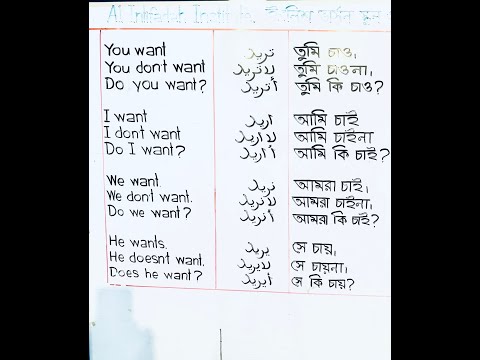 Al Intifadah Institute.
You want تريد তুমি চাও,
You dont want لاتريد তুমি চাওনা,
Do you want? أتريد তুমি কি চাও?
I want اريد আমি চাই
I dont want لااريد আমি চাইনা
Do I want? أاريد আমি কি চাই?
We want. نريد আমরা চাই,
We dont want. لانريد আমরা চাইনা,
Do we want? أنريد আমরা কি চাই?
He wants. يريد সে চায়,
He doesnt want. لايريد সে চায়না,
Does he want? أيريد সে কি চায়?